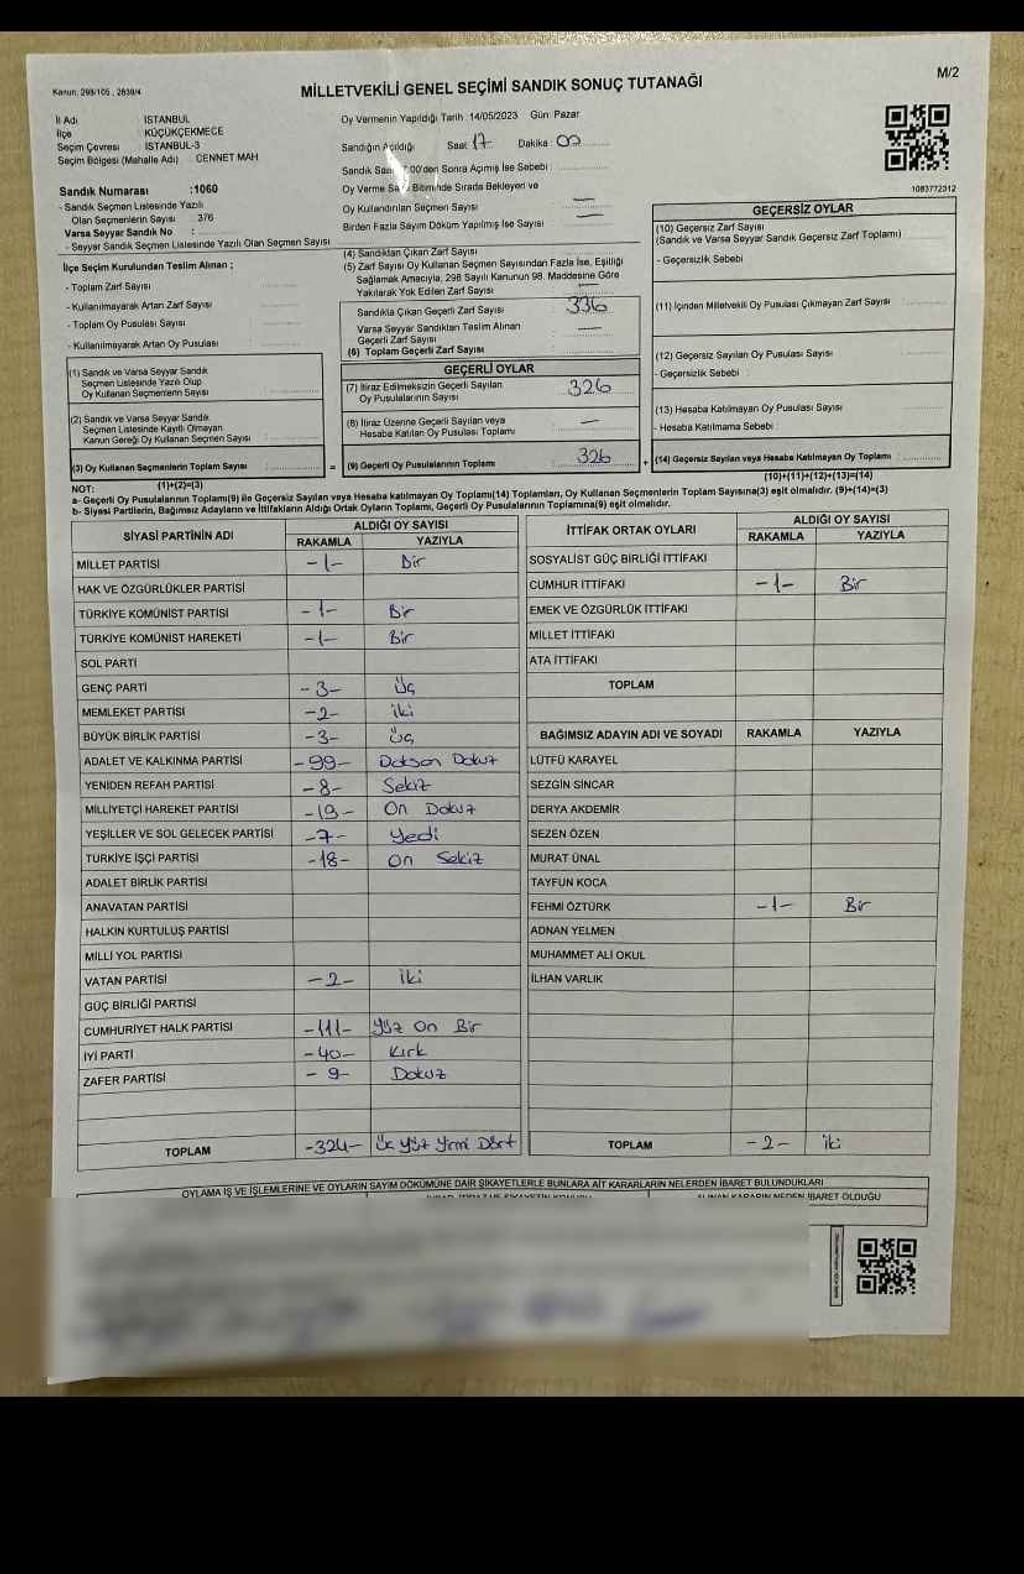 M/2
Kanun, 298/105, 2839/4
MİLLETVEKİLİ GENEL SEÇİMİ SANDIK SONUÇ TUTANAĞI
İl Adı İSTANBUL
İlçe KÜÇÜKÇEKMECE
Seçim Çevresi İSTANBUL-3
Seçim Bölgesi (Mahalle Adı) CENNET MAH
Sandık Numarası :1060
- Sandık Seçmen Listesinde Yazılı
Olan Seçmenlerin Sayısı 376
Varsa Seyyar Sandık No :
- Seyyar Sandık Seçmen Listesinde Yazılı Olan Seçmen Sayısı
İlçe Seçim Kurulundan Teslim Alınan ;
- Toplam Zarf Sayısı
- Kullanılmayarak Artan Zarf Sayısı
- Toplam Oy Pusulası Sayısı
- Kullanılmayarak Artan Oy Pusulası
(1) Sandık ve Varsa Seyyar Sandık
Seçmen Listesinde Yazılı Olup
Oy Kullanan Seçmenlerin Sayısı
(2) Sandık ve Varsa Seyyar Sandık
Seçmen Listesinde Kayıtlı Olmayan
Kanun Gereği Oy Kullanan Seçmen Sayısı
(3) Oy Kullanan Seçmenlerin Toplam Sayısı =
(1)+(2)=(3)
Oy Vermenin Yapıldığı Tarih 14/05/2023 Gün: Pazar
Sandığın Açıldığı Saat 17 Dakika : 00
Sandık 00'den Sonra Açımış İse Sebebi :
Oy Verme Bitiminde Sırada Bekleyen ve
Oy Kullandırılan Seçmen Sayısı —
Birden Fazla Sayım Döküm Yapılmış İse Sayısı —
(4) Sandıktan Çıkan Zarf Sayısı
(5) Zarf Sayısı Oy Kullanan Seçmen Sayısından Fazla İse, Eşitliği
Sağlamak Amacıyla, 298 Sayılı Kanunun 98. Maddesine Göre
Yakılarak Yok Edilen Zarf Sayısı —
Sandıkta Çıkan Geçerli Zarf Sayısı 336
Varsa Seyyar Sandıktan Teslim Alınan
Geçerli Zarf Sayısı —
(6) Toplam Geçerli Zarf Sayısı
GEÇERLİ OYLAR
(7) İtiraz Edilmeksizin Geçerli Sayılan
Oy Pusulalarının Sayısı 326
(8) İtiraz Üzerine Geçerli Sayılan veya
Hesaba Katılan Oy Pusulası Toplamı —
(9) Geçerli Oy Pusulalarının Toplamı 326 +
1083772312
GEÇERSİZ OYLAR
(10) Geçersiz Zarf Sayısı
(Sandık ve Varsa Seyyar Sandık Geçersiz Zarf Toplamı)
- Geçersizlik Sebebi
(11) İçinden Milletvekili Oy Pusulası Çıkmayan Zarf Sayısı
(12) Geçersiz Sayılan Oy Pusulası Sayısı
- Geçersizlik Sebebi
(13) Hesaba Katılmayan Oy Pusulası Sayısı
- Hesaba Katılmama Sebebi
(14) Geçersiz Sayılan veya Hesaba Katılmayan Oy Toplamı
(10)+(11)+(12)+(13)=(14)
NOT:
a- Geçerli Oy Pusulalarının Toplamı(9) ile Geçersiz Sayılan veya Hesaba katılmayan Oy Toplamı(14) Toplamları, Oy Kullanan Seçmenlerin Toplam Sayısına(3) eşit olmalıdır. (9)+(14)=(3)
b- Siyasi Partilerin, Bağımsız Adayların ve İttifakların Aldığı Ortak Oyların Toplamı, Geçerli Oy Pusulalarının Toplamına(9) eşit olmalıdır.
SİYASİ PARTİNİN ADI ALDIĞI OY SAYISI
RAKAMLA YAZIYLA
MİLLET PARTİSİ -1- Bir
HAK VE ÖZGÜRLÜKLER PARTİSİ
TÜRKİYE KOMÜNİST PARTİSİ -1- Bir
TÜRKİYE KOMÜNİST HAREKETİ -1- Bir
SOL PARTİ
GENÇ PARTİ -3- Üç
MEMLEKET PARTİSİ -2- iki
BÜYÜK BİRLİK PARTİSİ -3- Üç
ADALET VE KALKINMA PARTİSİ -99- Doksan Dokuz
YENİDEN REFAH PARTİSİ -8- Sekiz
MİLLİYETÇİ HAREKET PARTİSİ -19- On Dokuz
YEŞİLLER VE SOL GELECEK PARTİSİ -7- Yedi
TÜRKİYE İŞÇİ PARTİSİ -18- On Sekiz
ADALET BİRLİK PARTİSİ
ANAVATAN PARTİSİ
HALKIN KURTULUŞ PARTİSİ
MİLLİ YOL PARTİSİ
VATAN PARTİSİ -2- iki
GÜÇ BİRLİĞİ PARTİSİ
CUMHURİYET HALK PARTİSİ -111- Yüz On Bir
İYİ PARTİ -40- Kırk
ZAFER PARTİSİ -9- Dokuz
TOPLAM -324- Üç Yüz Yirmi Dört
İTTİFAK ORTAK OYLARI ALDIĞI OY SAYISI
RAKAMLA YAZIYLA
SOSYALİST GÜÇ BİRLİĞİ İTTİFAKI
CUMHUR İTTİFAKI -1- Bir
EMEK VE ÖZGÜRLÜK İTTİFAKI
MİLLET İTTİFAKI
ATA İTTİFAKI
TOPLAM
BAĞIMSIZ ADAYIN ADI VE SOYADI RAKAMLA YAZIYLA
LÜTFÜ KARAYEL
SEZGİN SİNCAR
DERYA AKDEMİR
SEZEN ÖZEN
MURAT ÜNAL
TAYFUN KOCA
FEHMİ ÖZTÜRK -1- Bir
ADNAN YELMEN
MUHAMMET ALİ OKUL
İLHAN VARLIK
TOPLAM -2- iki
OYLAMA İŞ VE İŞLEMLERİNE VE OYLARIN SAYIM DÖKÜMÜNE DAİR ŞİKAYETLERLE BUNLARA AİT KARARLARIN NELERDEN İBARET BULUNDUKLARI
ALINAN KARARIN NEDEN İBARET OLDUĞU